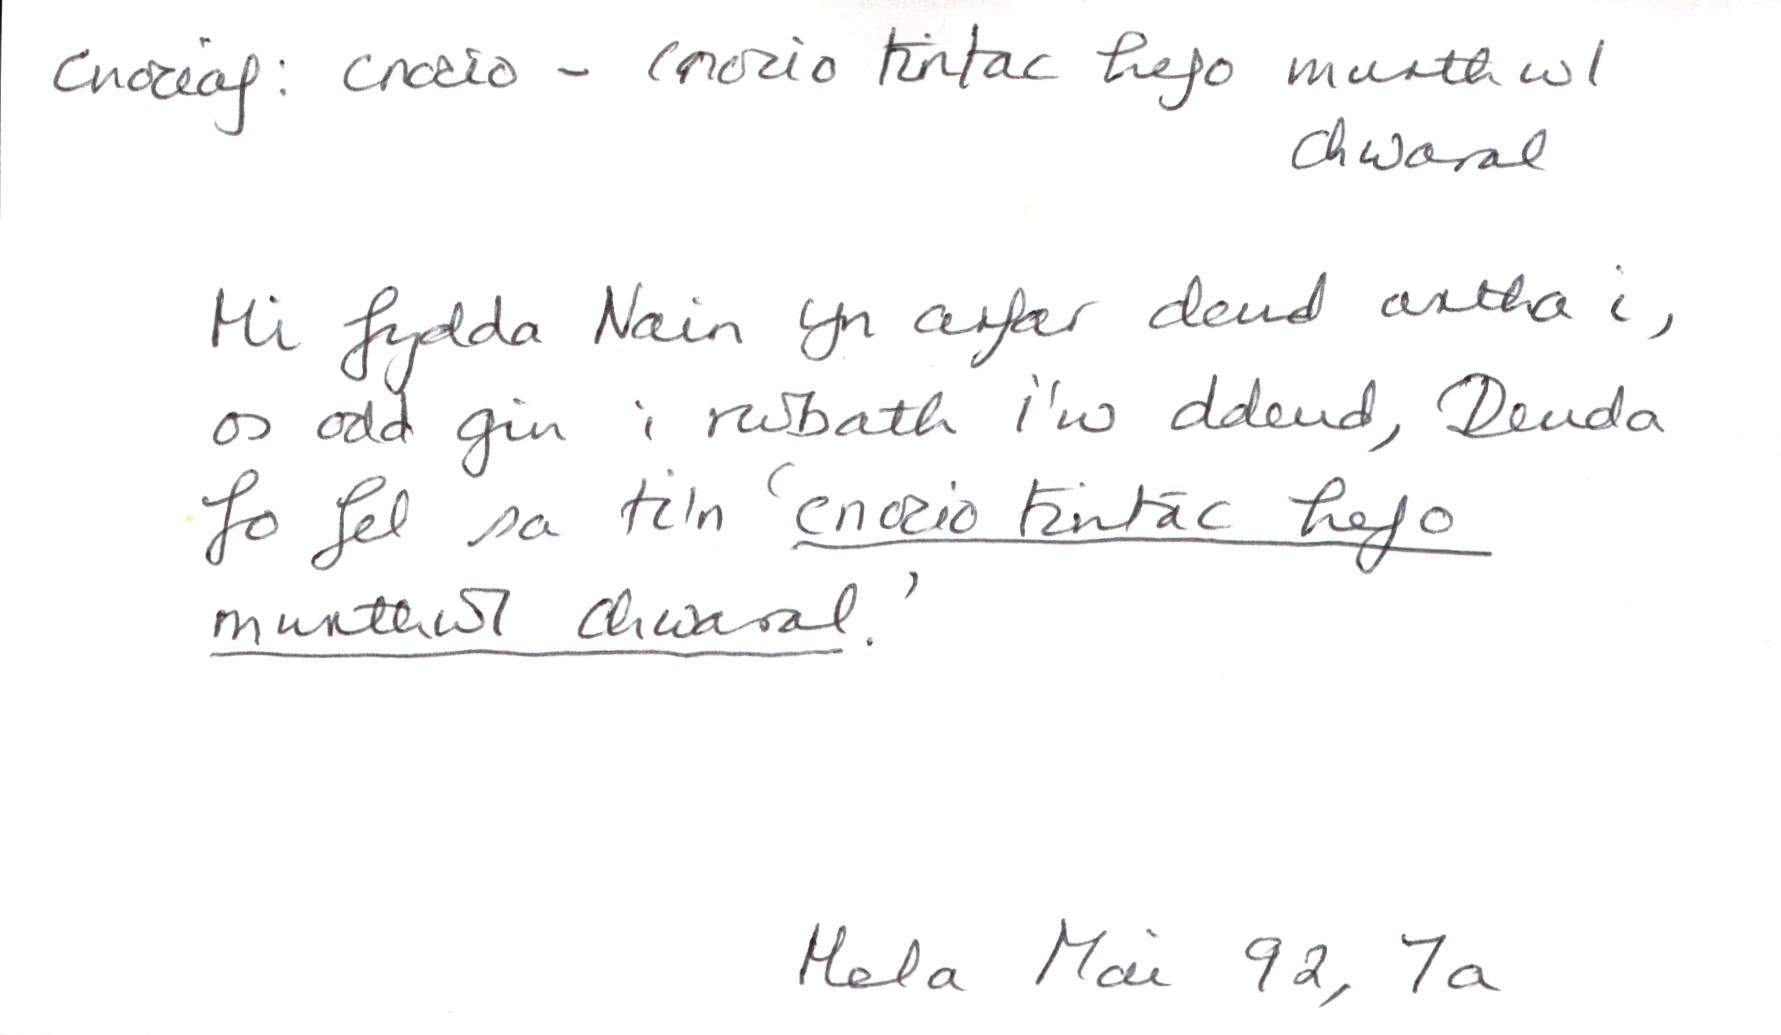 cnociaf: cnocio - cnocio tintac hefo murthwl
chwaral
Mi fydda Nain yn arfar deud wrtha i,
os odd gin i rwbath i'w ddeud, Deuda
fo fel sa ti'n 'cnocio tintac hefo
murthwl chwaral.'
Hela Mai 92, 7a